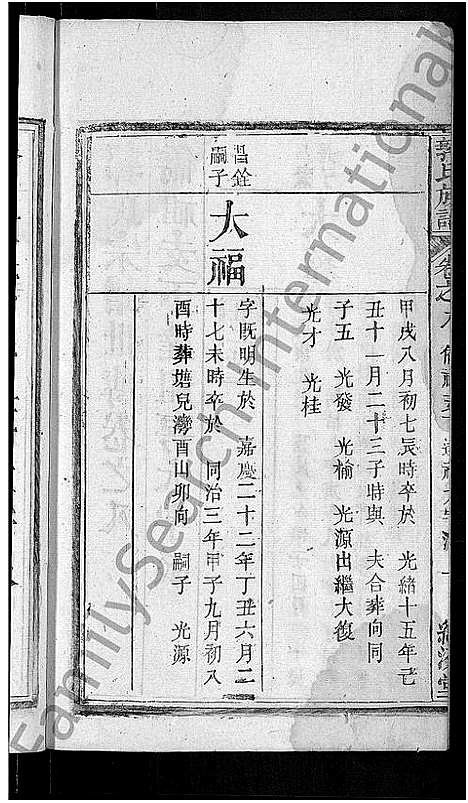 氏族譜
卷之八
甲戌八月初七辰時卒於 光緒十五年己
丑十一月二十三子時與 夫合葬向同
子五 光發 光榆 光源出繼大復
光才 光桂
昌銓
嗣子
大福
字既明生於 嘉慶二十二年丁丑六月二
十七未時卒於 同治三年甲子九月初八
酉時葬塘兒灣酉山卯向 嗣子 光源
FamilySearch International